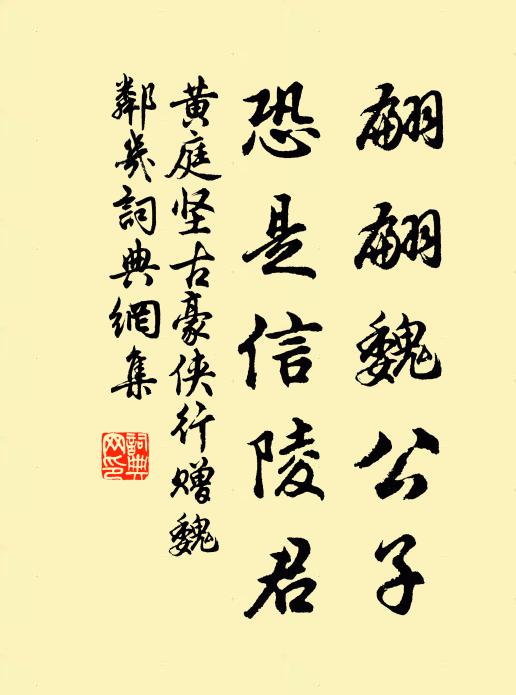 翩翩魏公子
恐是信陵君
黄庭坚古豪侠行赠魏
鄰幾詞典網集
詞典
网印